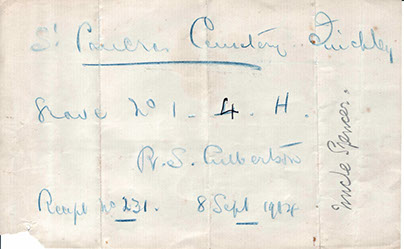 St Pancras Cemetery Finchley
Grave No 1 - 4. H.
R. S. Culbertson
Receipt No 231. 8 Sept 1904.
Uncle Spencer.